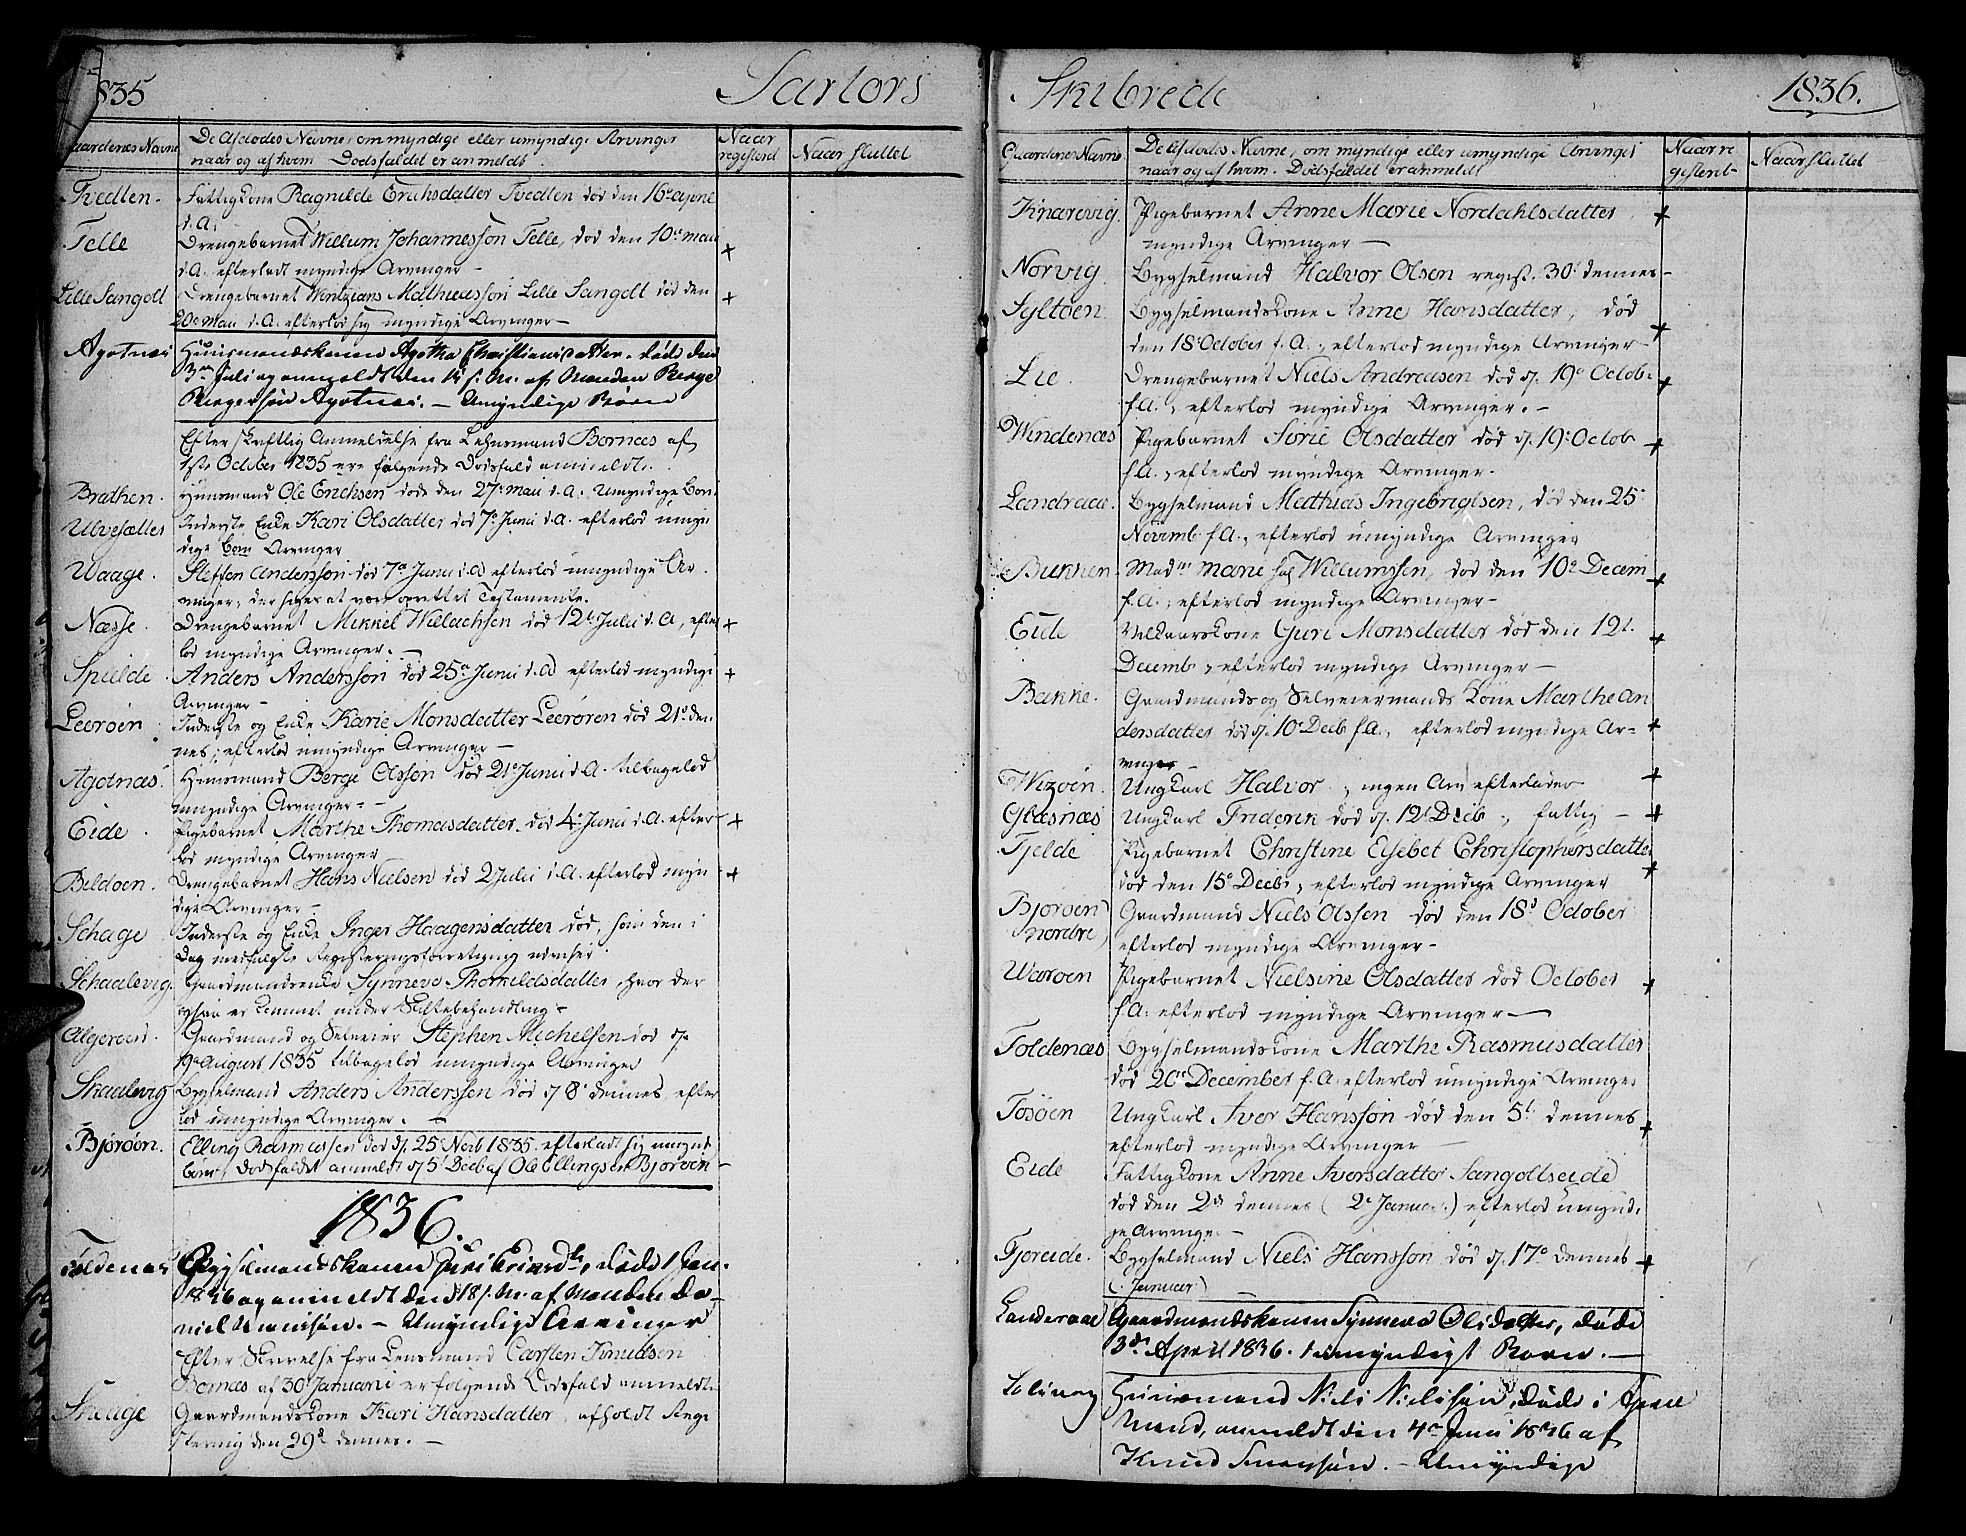 1835 Sartors
Gaardenes Navne
De Afdødes Navne, om myndige eller umyndige Arvinger
naar og af hvem Dødsfaldet er anmeldt
Naar registeret
Naar sluttet
Tvedten. Fattigkone Ragnilde Erichsdatter Tvedten død den 16de April
d.A.
Telle Drengebarnet Willum Johannesson Telle, død den 10de Maii +
d.A. efterladt myndige Arvinger –
Lille Sangolt Drengebarnet Mathiasson Lille Sangolt død den +
20de Mai d.A. efterlod sig myndige Arvinger –
Agotnæs Huusmandskonen Agotha Christiansdatter døde den
3de Juli og anmeldt den f. M. af Manden Berge
Bergersøn Agotnæs. – Umyndige Børn
Efter skriftlig Anmeldelse fra Lehnsmand Bornæs af
1ste October 1835 ere følgende Dødsfald anmeldte.
Brathen. Huusmand Ole Erichsen døde den 27de Maii d.A. Umyndige Børn
Ulvesætter Inderste Enke Kari Olsdatter død 7de Junii d.A. efterlod umyn
dige Arvinger
Waage. Steffen Andersson død 7de Junii d.A. efterlod umyndige Ar
vinger, der siges at være oprettet Testamente.
Næsse. Drengebarnet Mikkel Willachsen død 12te Julii d.A., efter +
lod myndige Arvinger. –
Spielde Anders Andersson død 25de Junii d.A. efterlod myndige +
Arvinger –
Leerøen Inderste og Enke Karie Monsdatter Leerøren død 21de den
nes, efterlod umyndige Arvinger –
Agotnæs Huusmand Berge Olsson død 21de Junii d.A. tilbagelod
umyndige Arvinger –
Eide. Pigebarnet Marthe Thomasdatter død 4de Junii d.A. efter +
lod myndige Arvinger
Bildøen. Drengebarnet Hans Nielsen død 2 Julii d.A. efterlod myn +
dige Arvinger –
Schage Inderste og Enke Inger Haagensdatter død, som den i
Dag medfulgte Registeringsforretning udviser
Schaalevig. Gaardmandsenke Synneve Thormildsdatter, hvor der
ogsaa er kommet under Skiftebehandling –
Algerøen. Gaardmand og Selveier Stephen Michelsen død d.
19de August 1835 tilbagelod umyndige Arvinger
Skaalevig Bygselmand Anders Anderssen død d. 8de dennes efter
lod umyndige Arvinger. –
Bjørøen. Elling Rasmussen død d. 25 Novb 1835. efterladt sig umynd.
børn, Dødsfaldet anmeldt d. 5te Decb af Ole Ellingsen Bjorøen –
1836.
Toldenæs Bygselmandskonen Guri døde 1 Jan.
1836 og anmeldt den 18 f. M. af Manden Da-
niel – Umyndige Arvinger
Efter Skrivelse fra Lensmand Carsten Knudsen
Bornæs af 30 Januarii er følgende Dødsfald anmeldt.
Skaage Gaardmandskone Kari Hansdatter, afholdt Regi
stering den 29de dennes. –
Skibrede 1836.
Gaardenes Navne
De Afdødes Navne, om myndige eller umyndige Arvinger
naar og af hvem Dødsfaldet er anmeldt
Naar registeret
Naar sluttet
Knarevig. Pigebarnet Anne Marie Nordahlsdatter +
myndige Arvinger –
Norvig Bygselmand Halvor Olsen regist. 30te dennes –
Syltøen Bygselmandskone Anne Hansdatter, død
den 18de October f.A., efterlod myndige Arvinger +
Lie. Drengebarnet Niels Andreasen død d. 19de Octobr. +
f.A., efterlod myndige Arvinger. –
Windenæs Pigebarnet Sirie Olsdatter død d. 19de Octob +
f.A., efterlod myndige Arvinger.
Landraae. Bygselmand Mathias Ingebrigtsen, død den 25de
Novemb f.A., efterlod umyndige Arvinger
Bukken. Madm Marie sal. Willumssen, død den 10de Decem +
f.A., efterlod myndige Arvinger –
Eide Velkaarskone Guri Monsdatter død den 12te +
Decemb, efterlod myndige Arvinger –
Bakke. Gaardmands og Selveiermands kone Marthe An
dersdatter død d. 10de Decb f.A., efterlod myndige Ar- +
vinger –
Wizøen. Ungkarl Halvor, ingen Arv efterlader +
Glæsnæs Ungkarl Friderik død d. 12te Decb., fattig – +
Tjelde Pigebarnet Christine Elsebet Christophersdatter
død den 15de Decb, efterlod myndige Arvinger +
Bjorøen Gaardmand Niels Olssen død den 18de October
nordre efterlod myndige Arvinger –
Warøen Pigebarnet Nielsine Olsdatter død October +
f.A. efterlod myndige Arvinger –
Toldenæs Bygselmandskone Marthe Rasmusdatter
død 20de December f.A. efterlod umyndige Arvinger
Tosøen Ungkarl Iver Hansson død den 5te dennes +
efterlod myndige Arvinger –
Eide Fattigkone Anne Iversdatter Sangoltseide
død den 2de dennes (2de Januar.) efterlod umyndi
ge Arvinger –
Fjoreide. Bygselmand Niels Hansson død d. 17de dennes +
(Januar)
Landeraae Gaardmandskonen Synneva Olsdatter, døde
3de April 1836. umyndigt Børn. –
Huusmand Niels Nielsen, døde i
anmeldt den 4de Juni 1836 af
Knud – Umyndige